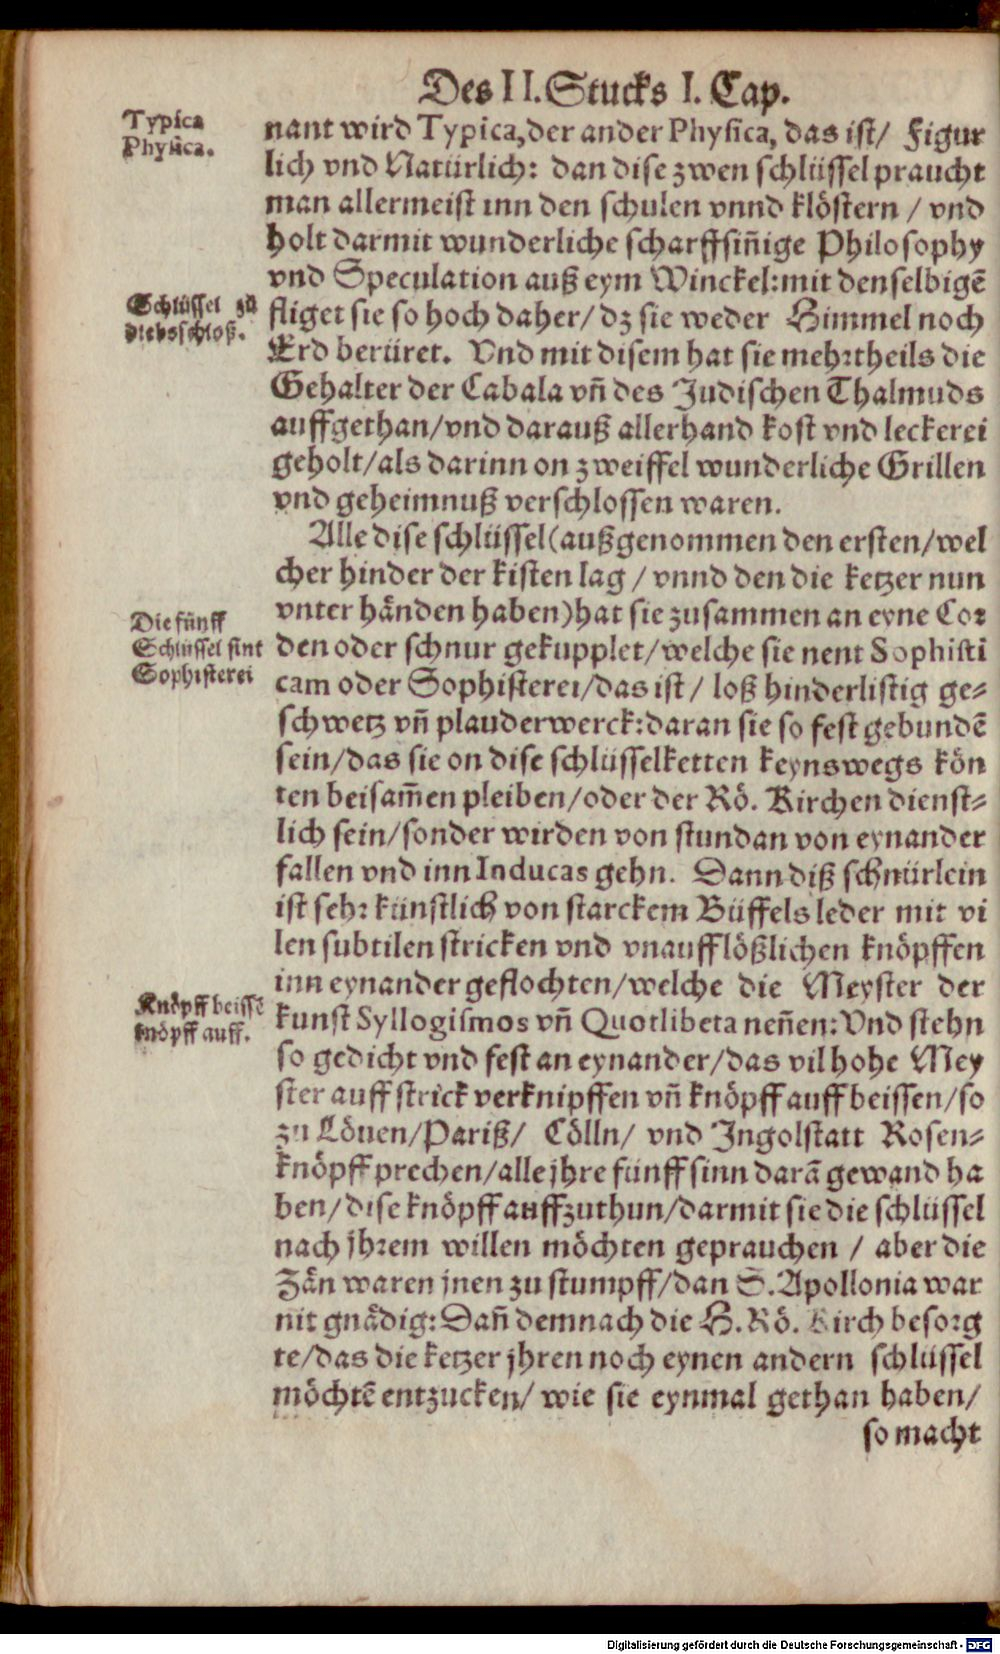 Des II. Stucks I. Cap.
Typica
Physica.
nant wird Typica, der ander Physica, das ist/ Figur
lich vnd Natürlich: dan dise zwen schlüssel praucht
man allermeist inn den schulen vnnd klöstern / vnd
holt darmit wunderliche scharffsiñige Philosophy
vnd Speculation auß eym Winckel: mit denselbigē
Schlüssel zů
diebsschloß.
fliget sie so hoch daher/ dz sie weder Himmel noch
Erd berüret. Vnd mit disem hat sie mehrtheils die
Gehalter der Cabala vñ des Judischen Thalmuds
auffgethan/ vnd darauß allerhand kost vnd leckerei
geholt/ als darinn on zweiffel wunderliche Grillen
vnd geheimnuß verschlossen waren.
Alle dise schlüssel (außgenommen den ersten/ wel
cher hinder der kisten lag / vnnd den die ketzer nun
vnter händen haben) hat sie zusammen an eyne Cor
Die fünff
Schlüssel sint
Sophisterei
den oder schnur gekupplet/ welche sie nent Sophisti
cam oder Sophisterei/ das ist / loß hinderlistig ge⸗
schwetz vñ plauderwerck: daran sie so fest gebundē
sein/ das sie on dise schlüsselketten keynswegs kön
ten beisam̃en pleiben/ oder der Rö. Kirchen dienst⸗
lich sein/ sonder wirden von stundan von eynander
fallen vnd inn Inducas gehn. Dann diß schnürlein
ist sehr künstlich von starckem Büffels leder mit vi
len subtilen stricken vnd vnaufflößlichen knöpffen
inn eynander geflochten/ welche die Meyster der
Knöpff beissē
knöpff auff.
kunst Syllogismos vñ Quotlibeta neñen: Vnd stehn
so gedicht vnd fest an eynander/ das vil hohe Mey
ster auff strick verknipffen vñ knöpff auff beissen/ so
zu Löuen/ Pariß/ Cölln/ vnd Ingolstatt Rosen⸗
knöpff prechen/ alle jhre fünff sinn darā gewand ha
ben/ dise knöpff auffzuthun/ darmit sie die schlüssel
nach jhrem willen möchten geprauchen / aber die
Zän waren jnen zu stumpff/ dan S. Apollonia war
nit gnädig: Dañ demnach die H. Rö. Kirch besorg
te/ das die ketzer jhren noch eynen andern schlüssel
möchtē entzucken/ wie sie eynmal gethan haben/
so macht
Digitalisierung gefördert durch die Deutsche Forschungsgemeinschaft - DFG